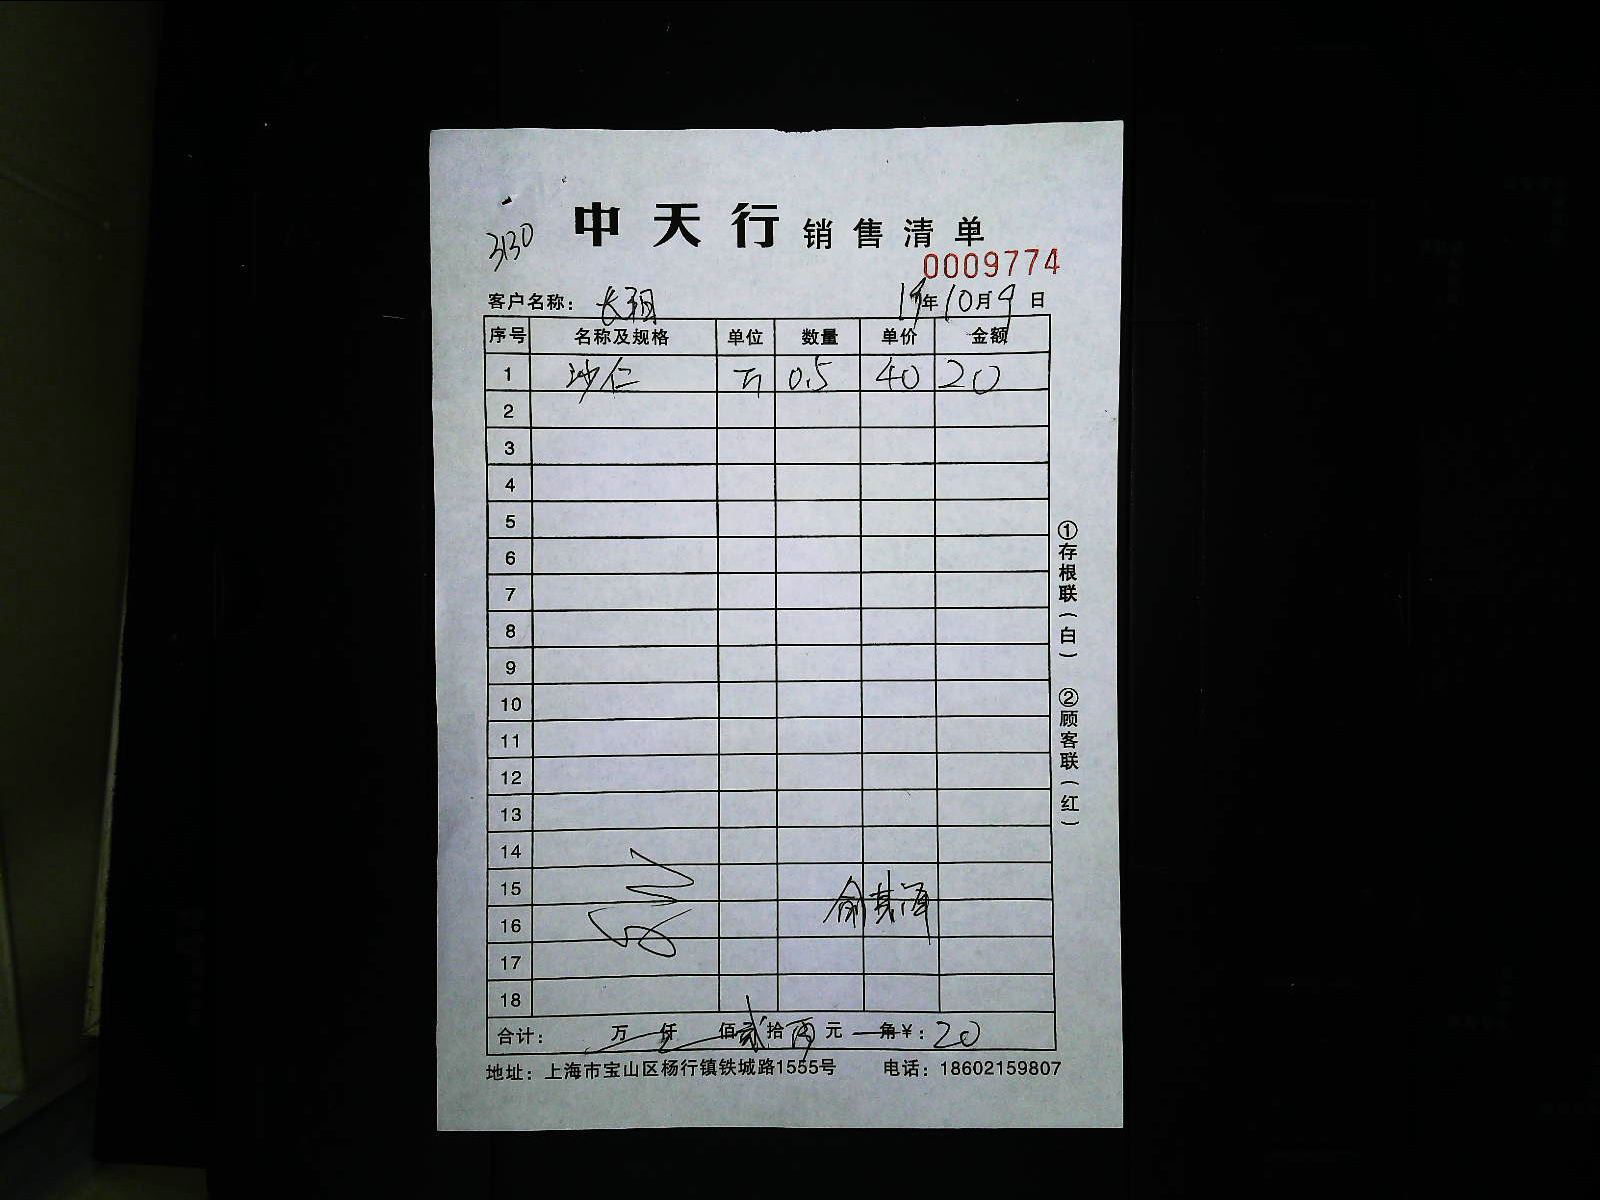 中天行 销售清单
3130
0009774
客户名称： 长翔 19年10月9日
序号 名称及规格 单位 数量 单价 金额
1 沙仁 斤 0.5 40 20
2
3
4
5
6
7
8
9
10
11
12
13
14
15
16
17
18
合计： 万 仟 佰 贰拾 元 角 ¥：20
地址：上海市宝山区杨行镇铁城路1555号 电话：18602159807
①存根联（白） ②顾客联（红）